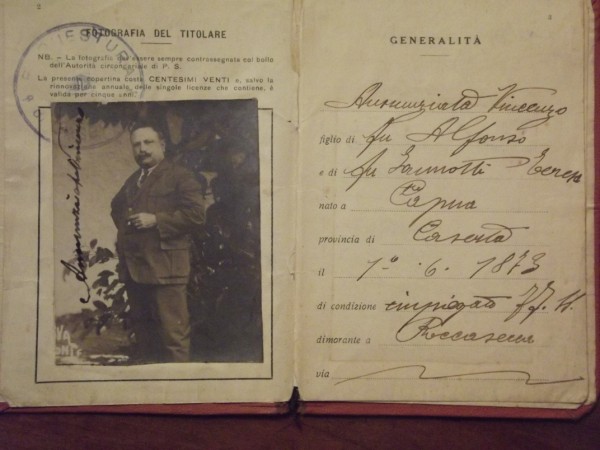 2
FOTOGRAFIA DEL TITOLARE
NB. - La fotografia dev'essere sempre contrassegnata col bollo
dell'Autorità circondariale di P. S.
La presente copertina costa CENTESIMI VENTI e, salvo la
rinnovazione annuale delle singole licenze che contiene, è
valida per cinque anni.
QUESTURA
3
GENERALITÀ
Annunziata Vincenzo
figlio di fu Alfonso
e di fu
nato a Capua
provincia di Caserta
il 1° . 6. 1873
di condizione impiegato
dimorante a Roccasecca
via